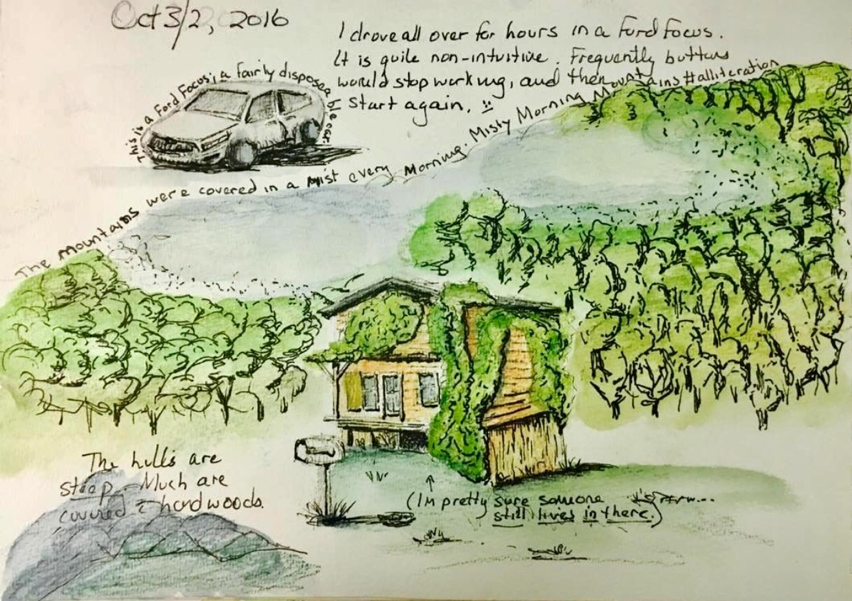 Oct 3/2, 2016
I drove all over for hours in a Ford Focus.
It is quite non-intuitive. Frequently buttons
would stop working, and then
start again.
This is a Ford Focus; a fairly disposable car.
The mountains were covered in a mist every morning. Misty Morning Mountains #alliteration
The hills are
steep. Much are
covered c̄ hardwoods.
(I'm pretty sure someone
still lives in there.)